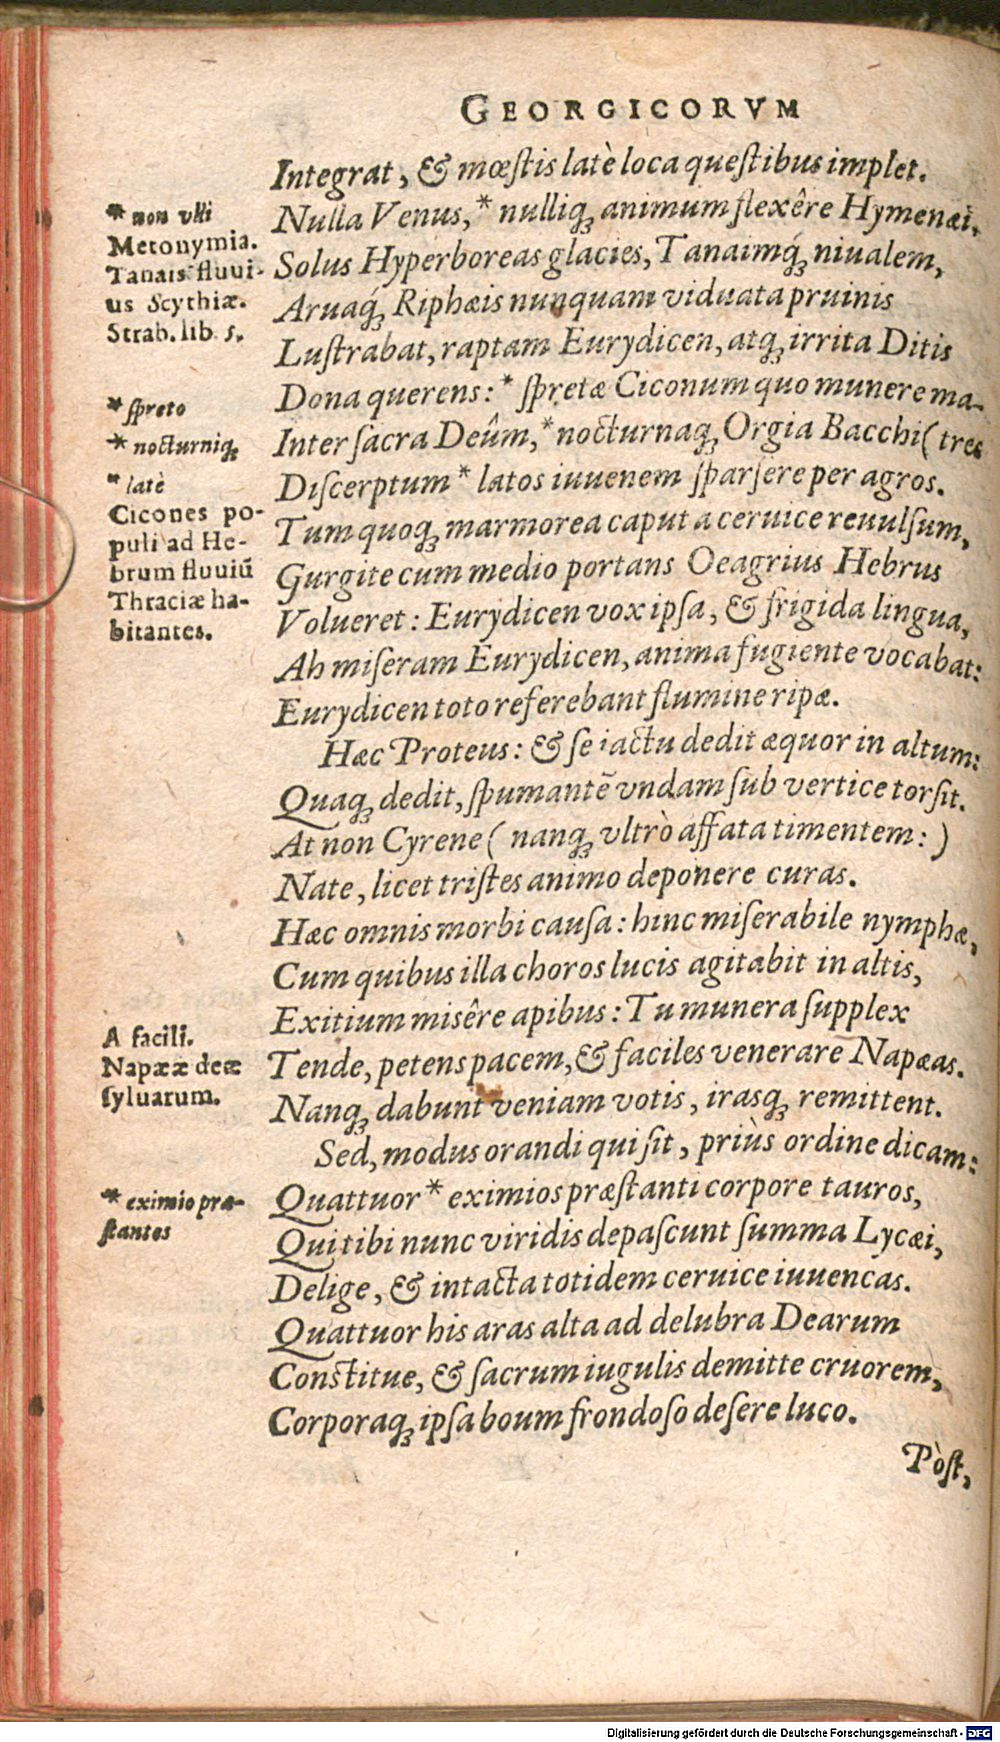 GEORGICORVM
Integrat, & mœſtis latè loca queſtibus implet.
Nulla Venus,* nulliq́; animum flexêre Hymenæi,
Solus Hyperboreas glacies, Tanaimq́; niualem,
Aruaq́; Riphæis nunquam viduata pruinis
Luſtrabat, raptam Eurydicen, atq; irrita Ditis
Dona querens:* ſpretæ Ciconum quo munere ma-
Inter ſacra Deûm,* nocturnaq; Orgia Bacchi (tres
Diſcerptum* latos iuuenem ſparſere per agros.
Tum quoq; marmorea caput a ceruice reuulſum,
Gurgite cum medio portans Oeagrius Hebrus
Volueret: Eurydicen vox ipſa, & frigida lingua,
Ah miſeram Eurydicen, anima fugiente vocabat:
Eurydicen toto referebant flumine ripæ.
Hæc Proteus: & ſe iactu dedit æquor in altum:
Quaq; dedit, ſpumantẽ vndam ſub vertice torſit.
At non Cyrene ( nanq; vltrò affata timentem: )
Nate, licet triſtes animo deponere curas.
Hæc omnis morbi cauſa: hinc miſerabile nymphæ,
Cum quibus illa choros lucis agitabit in altis,
Exitium misêre apibus: Tu munera ſupplex
Tende, petens pacem, & faciles venerare Napæas.
Nanq; dabunt veniam votis, irasq; remittent.
Sed, modus orandi qui ſit, priùs ordine dicam:
Quattuor* eximios præſtanti corpore tauros,
Qui tibi nunc viridis depaſcunt ſumma Lycæi,
Delige, & intacta totidem ceruice iuuencas.
Quattuor his aras alta ad delubra Dearum
Conſtitue, & ſacrum iugulis demitte cruorem,
Corporaq; ipſa boum frondoſo deſere luco.
Pòſt,
* non vlli
Metonymia.
Tanais fluui-
us Scythiæ.
Strab. lib. 5.
* ſpreto
* nocturniq;
* latè
Cicones po-
puli ad He-
brum fluuiũ
Thraciæ ha-
bitantes.
A facili.
Napææ deæ
ſyluarum.
* eximio præ-
ſtantes
Digitalisierung gefördert durch die Deutsche Forschungsgemeinschaft - DFG